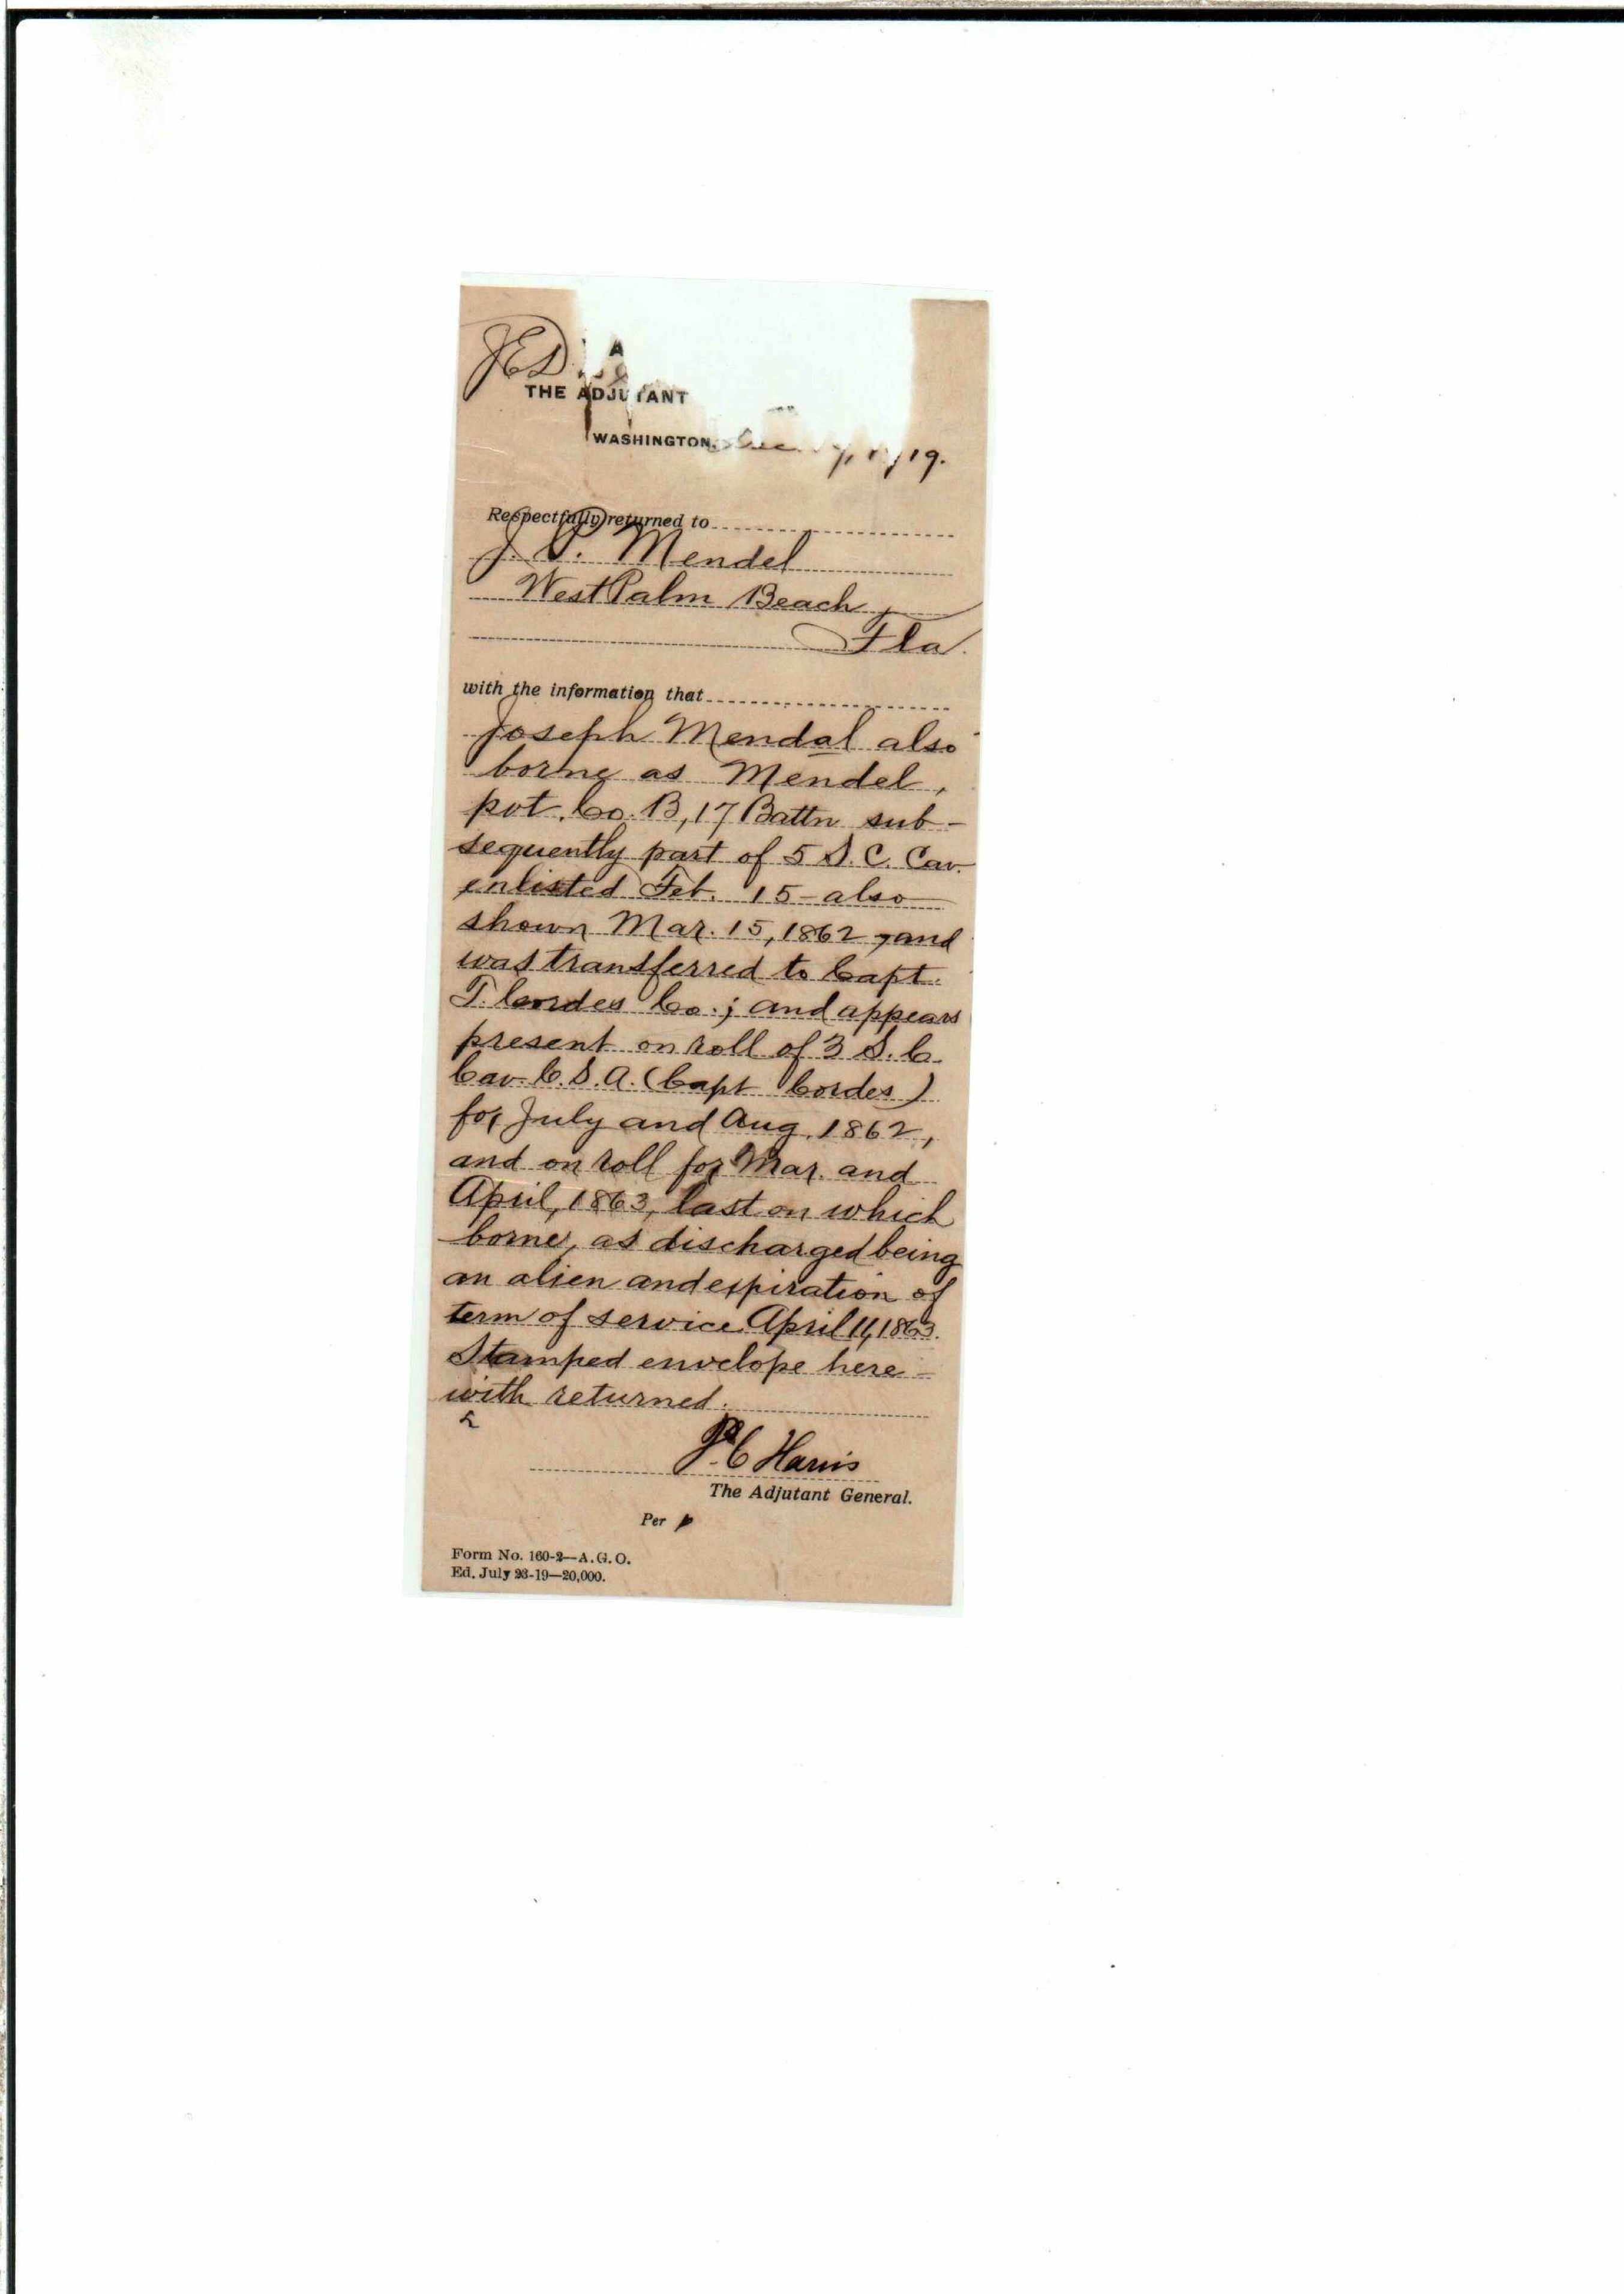 JED
A
THE ADJUTANT
WASHINGTON, 19.
Respectfully returned to
J. P. Mendel
West Palm Beach,
Fla.
with the information that
Joseph Mendal also
borne as Mendel,
pvt. Co. B, 17 Battn sub-
sequently part of 5 S. C. Cav.
enlisted Feb. 15 - also
shown Mar. 15, 1862, and
was transferred to Capt.
T. Cordes Co.; and appears
present on roll of 3 S. C.
Cav. C. S. A. (Capt Cordes)
for July and Aug. 1862,
and on roll for Mar. and
April, 1863, last on which
borne, as discharged being
an alien and expiration of
term of service April 11, 1863.
Stamped envelope here-
with returned.
P. C. Harris
The Adjutant General.
Per
Form No. 160-2—A.G.O.
Ed. July 23-19—20,000.